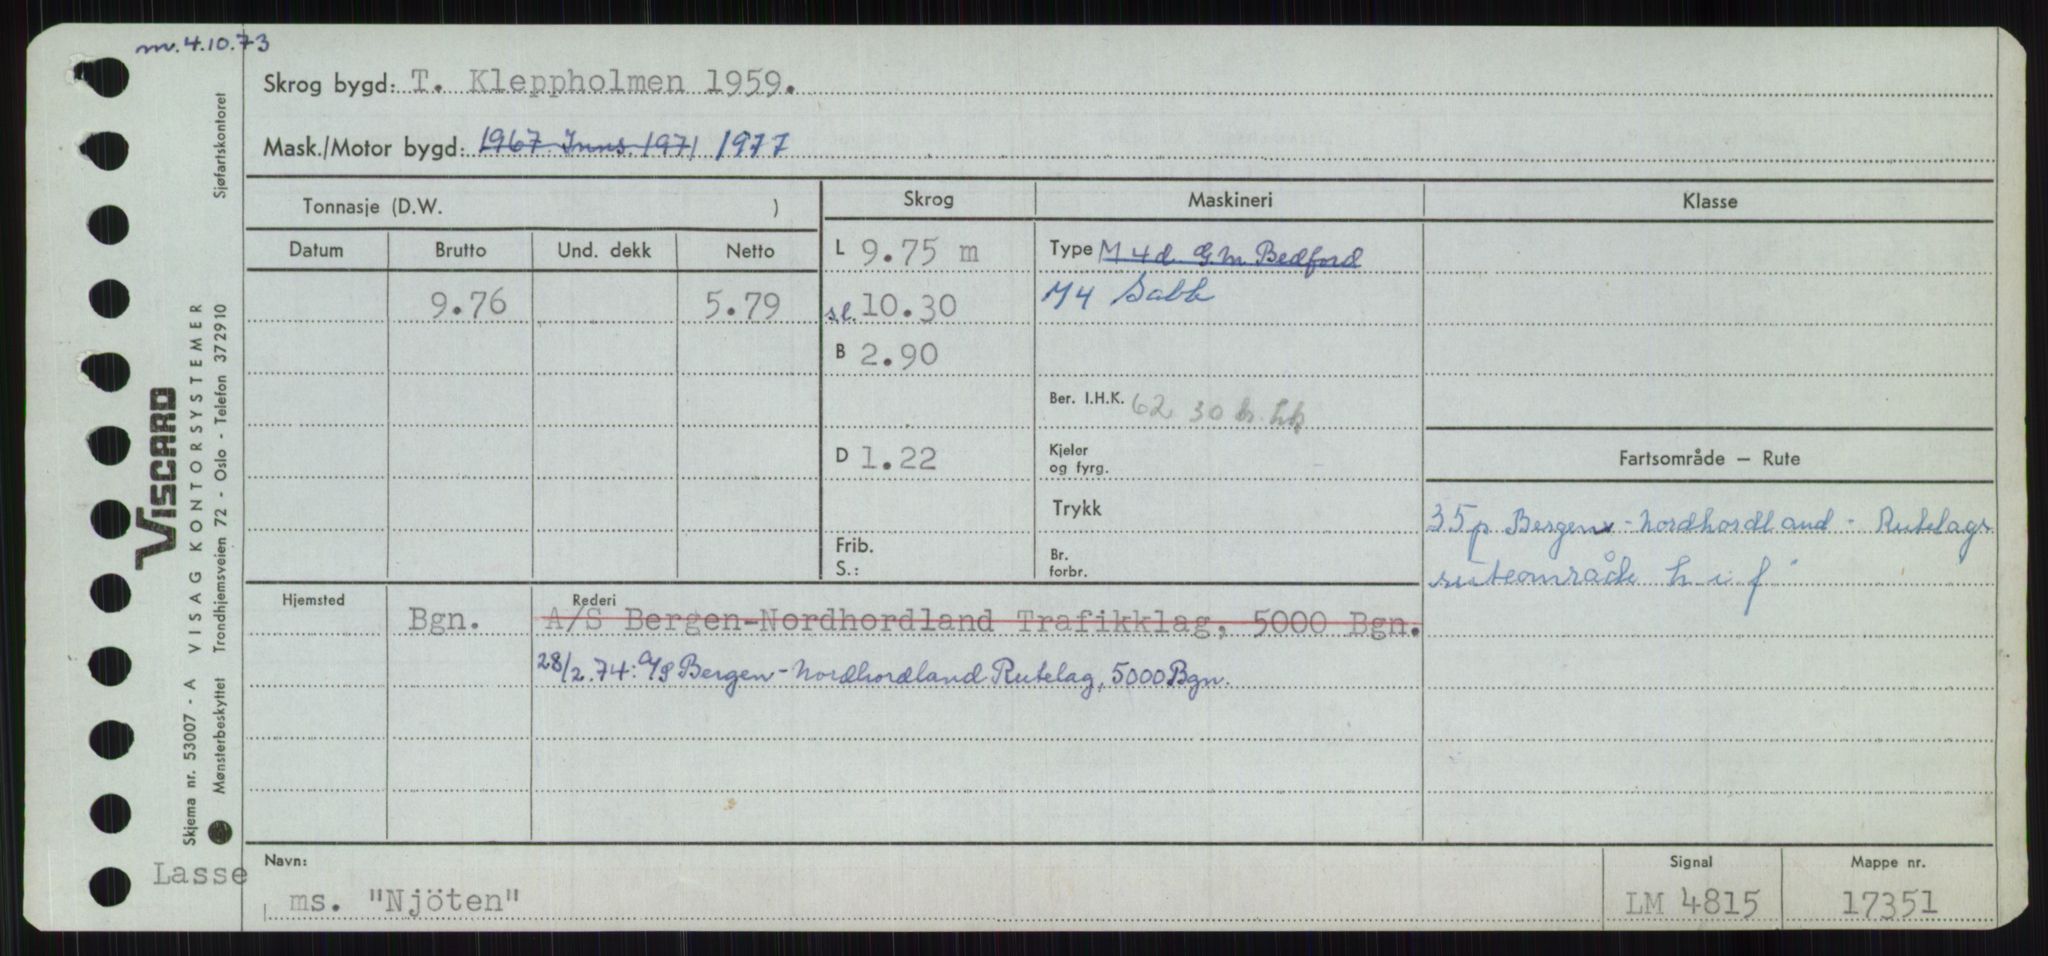 m. 4.10.73
Skrog bygd: T. Kleppholmen 1959.
Mask./Motor bygd: 1967 Inns. 1971 1977
Tonnasje (D.W. )
Skrog
Maskineri
Klasse
Datum
Brutto
Und. dekk
Netto
L 9.75 m
Type M 4d. G.M. Bedford
9.76
5.79
sl. 10.30
M4 Sabb
B 2.90
Ber. I.H.K. 62 30
D 1.22
Kjeler
og fyrg.
Fartsområde – Rute
Trykk
35p Bergen - Nordhordland - Rutelags
Frib.
S.:
Br.
forbr.
ruteområde h i f
Hjemsted
Bgn.
Rederi
A/S Bergen-Nordhordland Trafikklag, 5000 Bgn.
28/2.74: A/S Bergen - Nordhordland Rutelag, 5000 Bgn.
Navn:
ms. "Njöten"
Signal
LM 4815
Mappe nr.
17351
Lasse
VISCARD
Skjema nr. 53007 - A VISAG KONTORSYSTEMER
Mønsterbeskyttet Trondhjemsveien 72 - Oslo - Telefon 372910 Sjøfartskontoret